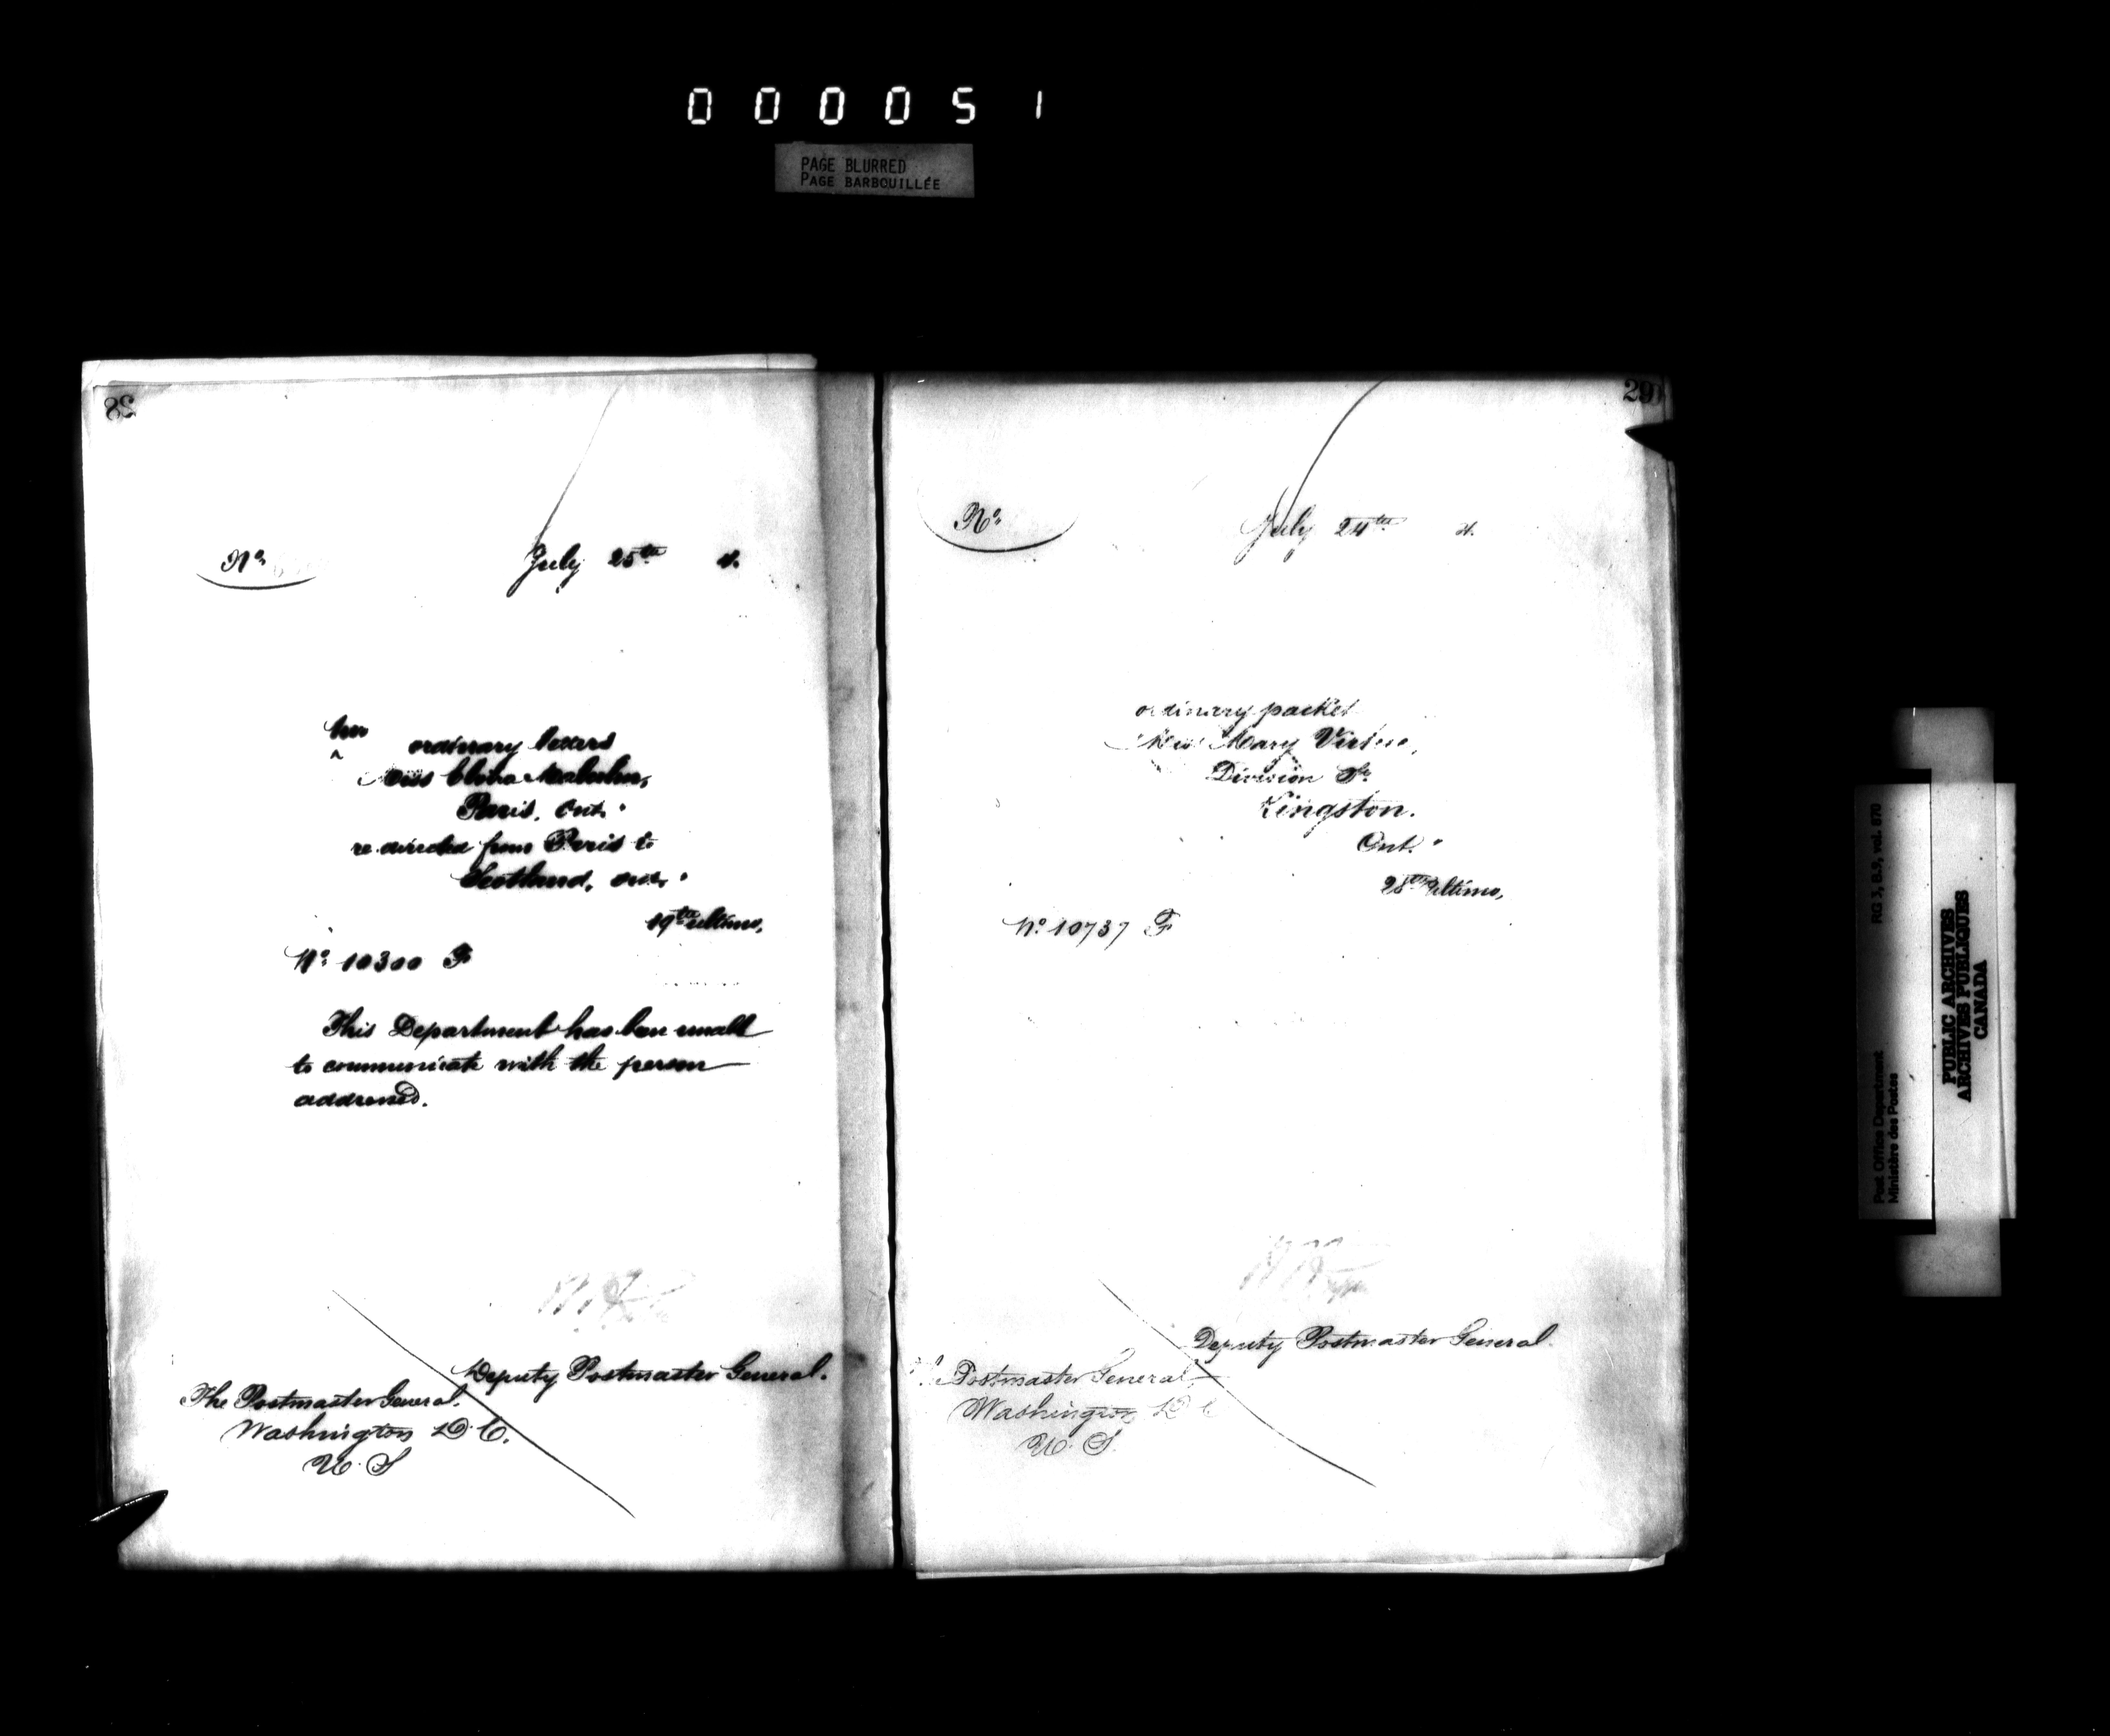 000051
PAGE BLURRED
PAGE BARBOUILLÉE
28
No.
July 25th 4.
two
^ ordinary letters
Miss Malcolm,
Paris, Ont.
re-directed from Paris to
Scotland, Ont.
19th ultimo,
No. 10300 F
This Department has been unable
to communicate with the person
addressed.
Deputy Postmaster General.
The Postmaster General,
Washington D.C.
U.S
29
No.
July 24th 4.
ordinary packet
Miss Mary Virtue,
Division St.
Kingston.
Ont.
28th ultimo,
No. 10737 F
Deputy Postmaster General.
The Postmaster General,
Washington D.C
U.S.
RG 3, B.9, vol. 870
Post Office Department
Ministère des Postes
PUBLIC ARCHIVES
ARCHIVES PUBLIQUES
CANADA